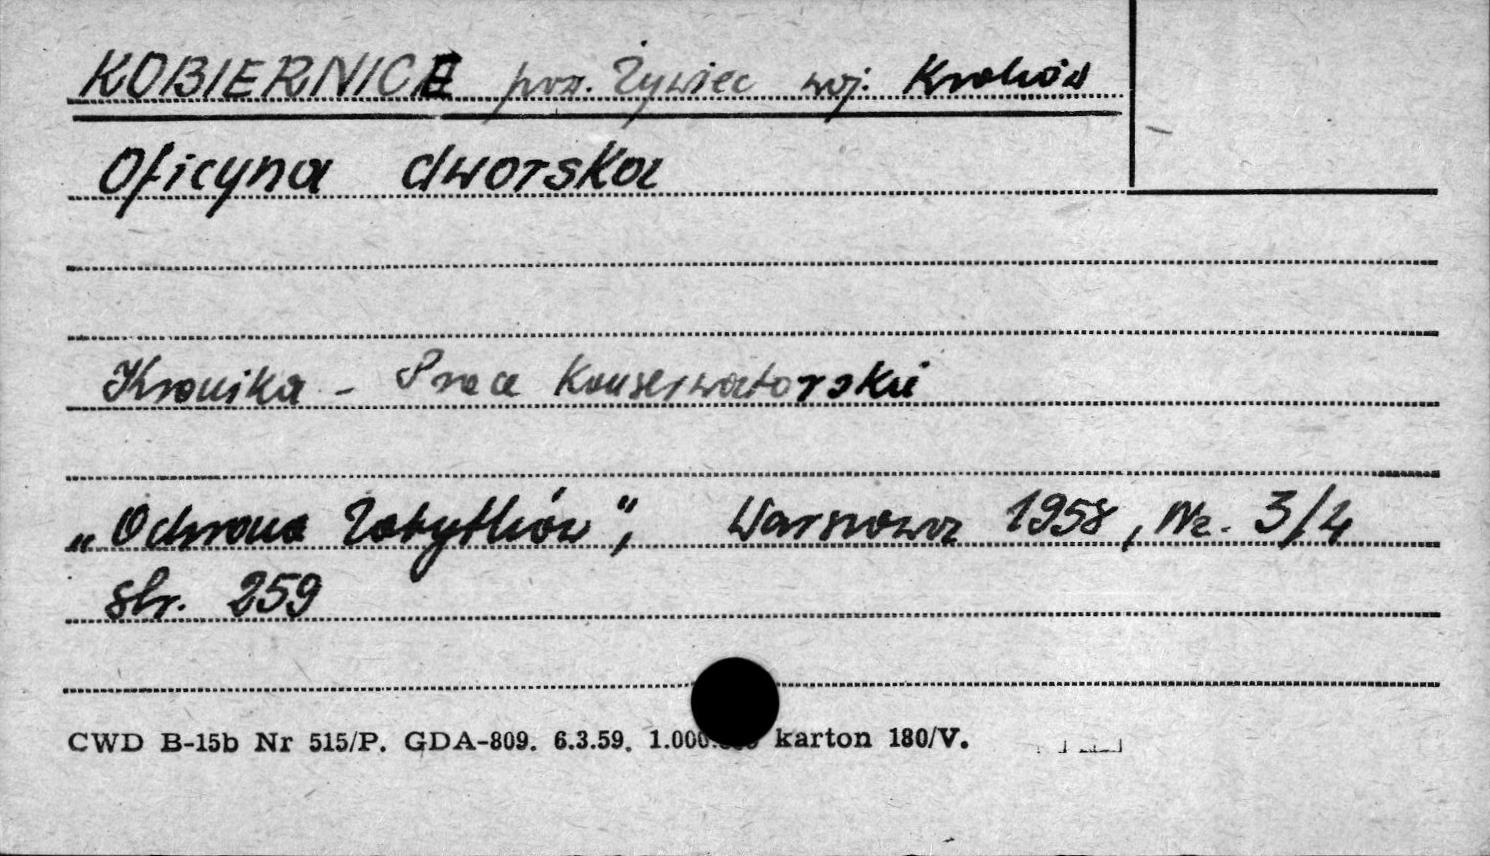 KOBIERNICE pow. Żywiec woj. Kraków
Oficyna dworska
Kronika - Prace Konserwatorskie
„Ochrona Zabytków”, Warszawa 1958, Nr. 3/4
str. 259
CWD B-15b Nr 515/P. GDA-809. 6.3.59. 1.000.000 karton 180/V.